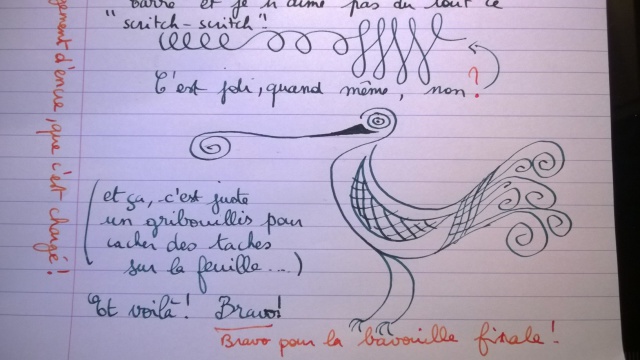 barre et je n'aime pas du tout ce
"scritch-scritch"!
C'est joli, quand même, non?
(et ça, c'est juste
un gribouillis pour
cacher des taches
sur la feuille...)
Et voilà! Bravo!
Bravo pour la bavouille finale!
d'encre, que c'est chargé!